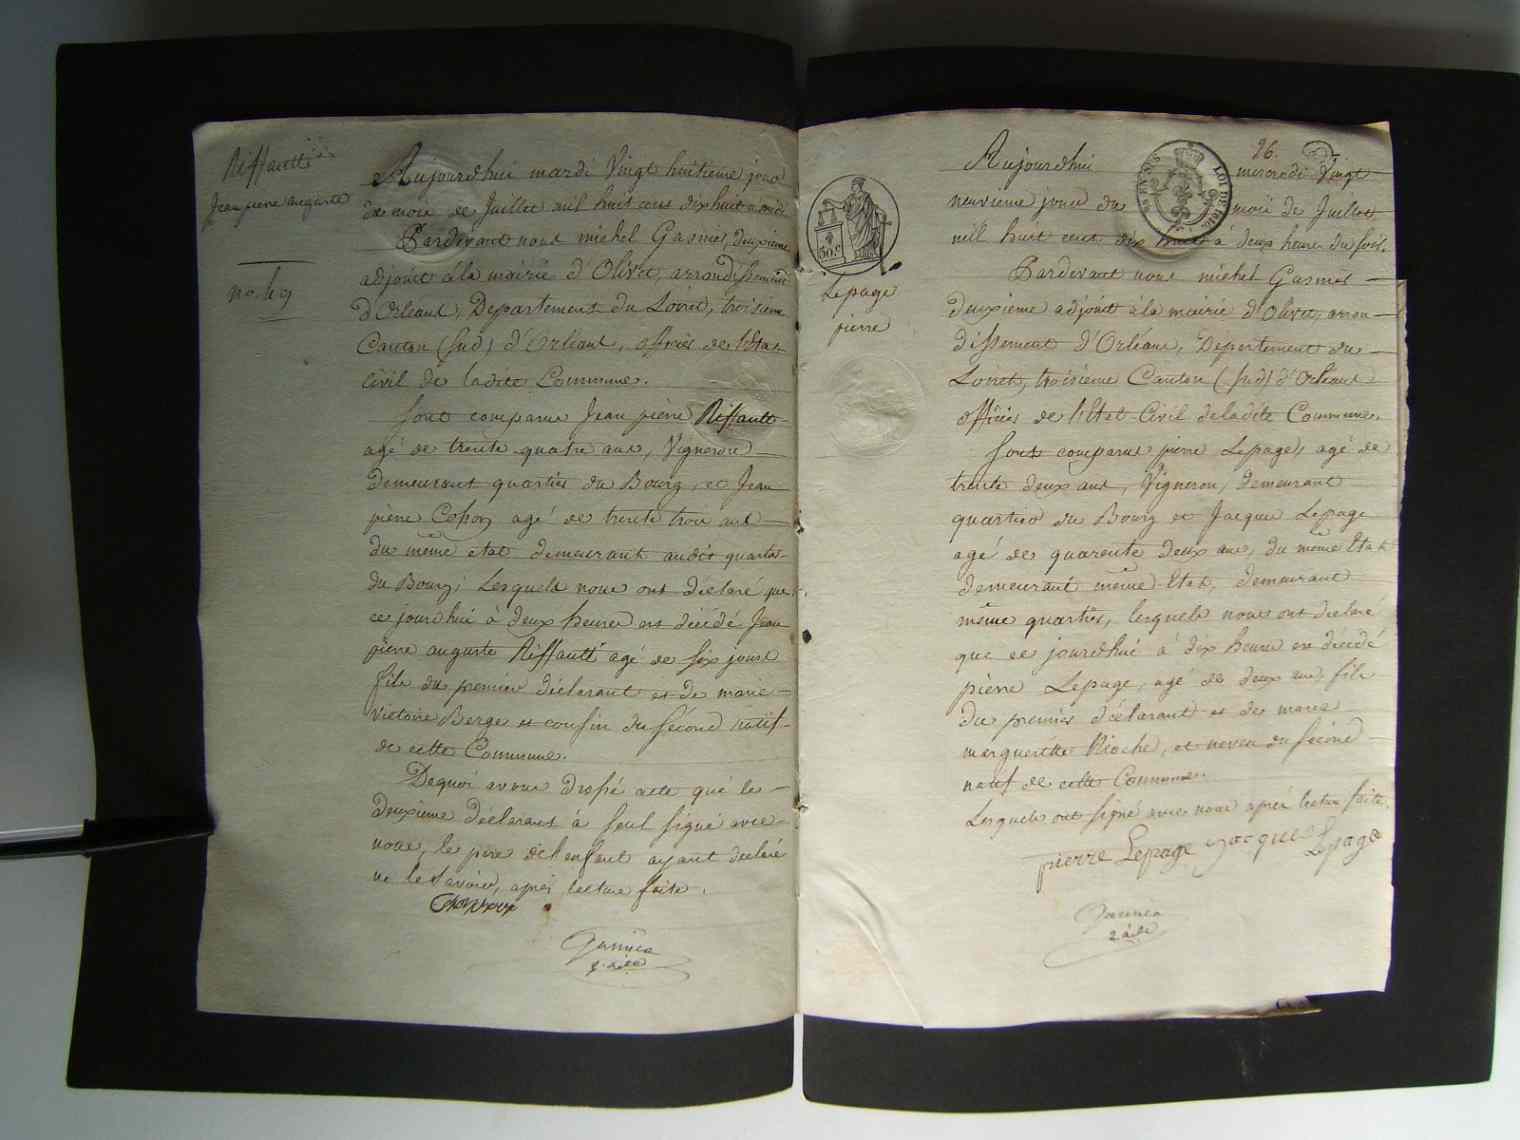 Riffault
Jean pierre auguste
no. 49
Aujourdhui mardi Vingt huitieme jour
du mois de Juillet mil huit cens dix huit
Pardevant nous michel Gasnier, deuxieme
adjoint à la mairie d'Olivet, arrondissement
d'Orleans, Departement du Loiret, troisieme
Canton (sud) d'Orleans, officier de l'Etat
Civil de ladite Commune.
Sont comparus Jean pierre Riffault
agé de trente quatre ans, Vigneron
demeurant quartier du Bourg, et Jean
pierre agé de trente trois ans
du même etat demeurant audit quartier
du Bourg; Lesquels nous ont déclaré que
ce jourdhui à deux heures est décédé Jean
pierre auguste Riffault agé de six jours
fils du premier déclarant et de marie
Victoire Berge et cousin du second natif
de cette Commune.
Dequoi avons dressé acte que le
deuxieme déclarant à seul signé avec
nous, le pere de l'enfant ayant declaré
ne le savoir, après lecture faite.
Gasnier
26.
Aujourdhui mercredi Vingt
neuvieme jour du mois de Juillet
mil huit cent dix huit à deux heures du soir.
Pardevant nous michel Gasnier
deuxieme adjoint à la mairie d'Olivet, arron
dissement d'Orléans, Département du
Loiret, troisieme Canton (sud) d'Orleans
officier de l'Etat Civil de ladite Commune.
Sont comparus pierre Lepage, agé de
trente deux ans, Vigneron, demeurant
quartier du Bourg et Jacque Lepage
agé de quarente deux ans, du même Etat
demeurant même Etat, demeurant
même quartier, lesquels nous ont declaré
que ce jourdhui à dix heures est décédé
pierre Lepage, agé de deux ans, fils
du premier déclarant et de marie
marguerite Rioche, et neveu du second
natif de cette Commune.
Lesquels ont signé avec nous après lecture faite.
pierre Lepage jacque Lepage
Gasnier
Lepage
pierre
30.c
LOI DE 1816